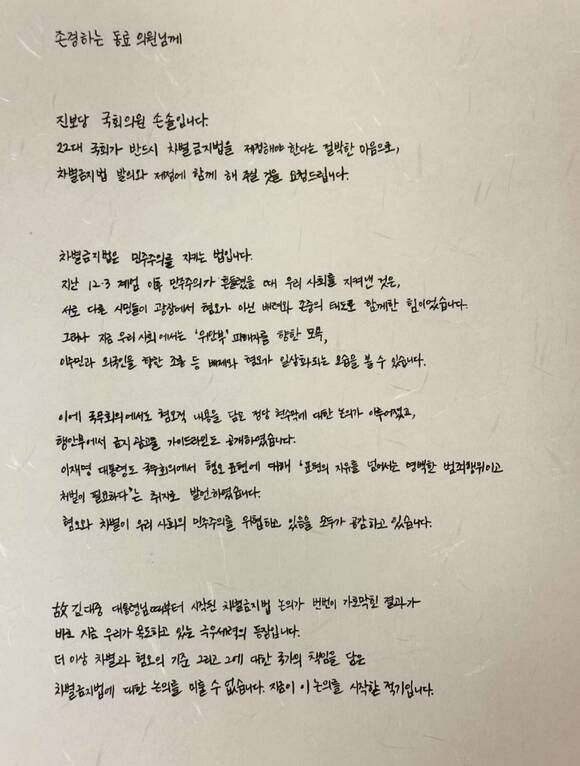 존경하는 동료 의원님께
진보당 국회의원 손솔입니다.
22대 국회가 반드시 차별금지법을 제정해야 한다는 절박한 마음으로,
차별금지법 발의와 제정에 함께 해 주실 것을 요청드립니다.
차별금지법은 민주주의를 지키는 법입니다.
지난 12.3 계엄 이후 민주주의가 흔들렸을 때 우리 사회를 지켜낸 것은,
서로 다른 시민들이 광장에서 혐오가 아닌 배려와 존중의 태도로 함께한 힘이었습니다.
그러나 지금 우리 사회에서는 '위안부' 피해자를 향한 모욕,
이주민과 외국인을 향한 조롱 등 배제와 혐오가 일상화되는 모습을 볼 수 있습니다.
이에 국무회의에서도 혐오적 내용을 담은 정당 현수막에 대한 논의가 이루어졌고,
행안부에서 금지광고물 가이드라인도 공개하였습니다.
이재명 대통령도 국무회의에서 혐오 표현에 대해 '표현의 자유를 넘어서는 명백한 범죄행위이고
처벌이 필요하다'는 취지로 발언하였습니다.
혐오와 차별이 우리 사회의 민주주의를 위협하고 있음을 모두가 공감하고 있습니다.
故 김대중 대통령님 때부터 시작된 차별금지법 논의가 번번이 가로막힌 결과가
바로 지금 우리가 목도하고 있는 극우세력의 등장입니다.
더 이상 차별과 혐오의 기준 그리고 그에 대한 국가의 책임을 담은
차별금지법에 대한 논의를 미룰 수 없습니다. 지금이 이 논의를 시작할 적기입니다.